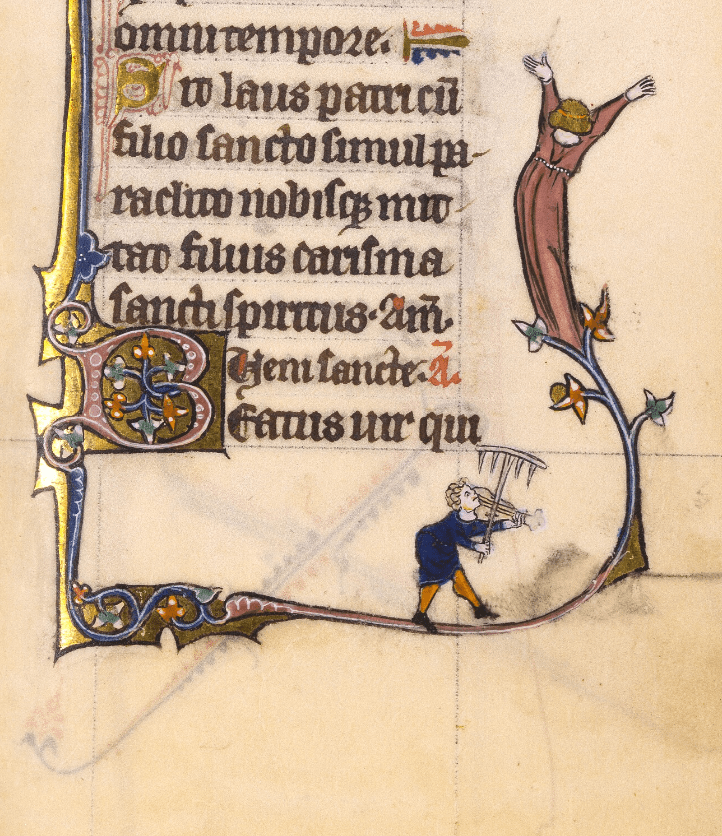 omni tempore.
Sit laus patri cũ
filio sancto simul pa-
raclito nobisqꝫ mit-
tat filius carisma
sancti spiritus. Am̃.
Veni sancte. A.
BEatus uir qui